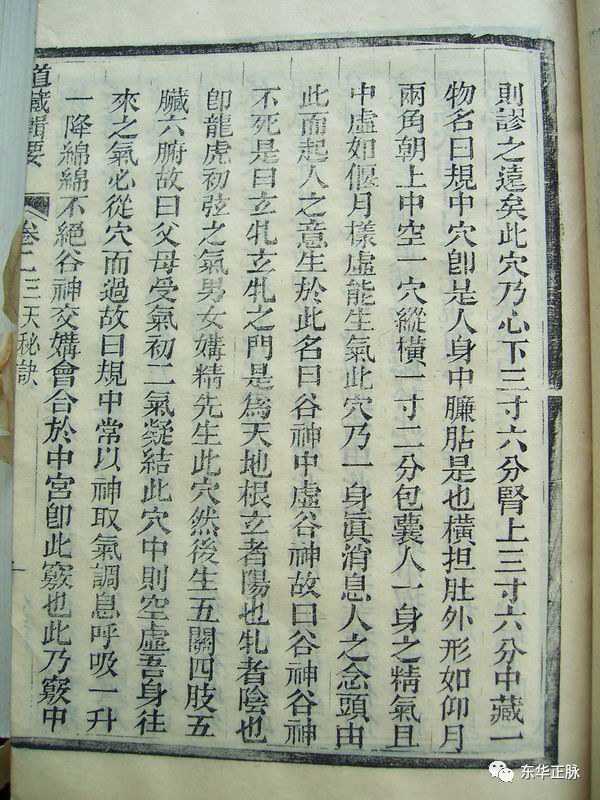 則謬之遠矣此穴乃心下三寸六分腎上三寸六分中藏一
物名曰規中穴卽是人身中臁胋是也橫担肚外形如仰月
兩角朝上中空一穴縱橫一寸二分包囊人一身之精氣且
中虛如偃月樣虛能生氣此穴乃一身眞消息人之念頭由
此而起人之意生於此名曰谷神中虛谷神故曰谷神谷神
不死是曰玄牝玄牝之門是爲天地根玄者陽也牝者陰也
卽龍虎初弦之氣男女媾精先生此穴然後生五關四肢五
臟六腑故曰父母受氣初二氣凝結此穴中則空虛吾身往
來之氣必從穴而過故曰規中常以神取氣調息呼吸一升
一降綿綿不絕谷神交媾會合於中宮卽此竅也此乃竅中
道藏輯要 卷二 三天秘訣
东华正脉